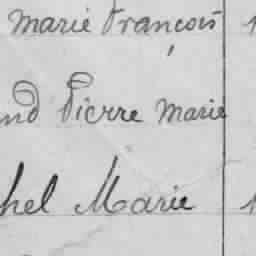 marie françois
and Pierre marie
chel Marie